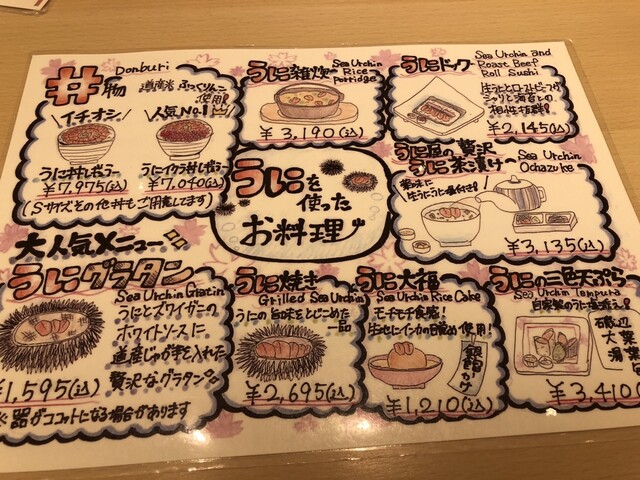 丼物 Donburi
道産米 ふっくりんこ
使用
イチオシ
人気No.1
うに丼
¥7,975(込)
うにイクラ丼
¥7,040(込)
(Sサイズその他丼もご用意してます)
うに雑炊
Sea Urchin
Rice
Porridge
¥3,190(込)
うにドック
Sea Urchin and
Roast Beef
Roll Sushi
生うにとローストビーフ
シャリと海苔との
相性抜群!
¥2,145(込)
うにを
使った
お料理
うに屋の贅沢
うに茶漬け
Sea Urchin
Ochazuke
薬味に
¥3,135(込)
大人気メニュー
うにグラタン
Sea Urchin Gratin
うにとズワイガニの
ホワイトソースに
道産じゃが芋を入れた
贅沢なグラタン
¥1,595(込)
※器がココットになる場合があります
うに焼き
Grilled Sea Urchin
うにの旨味をとじこめた
一品
¥2,695(込)
うに大福
Sea Urchin Rice Cake
モチモチ食感!
生うにとインカの目覚め使用!
銀餡かけ
¥1,210(込)
うにの三色天ぷら
Sea Urchin Tempura
自家製のうに塩添え
磯辺
大葉
湯葉
¥3,410(込)